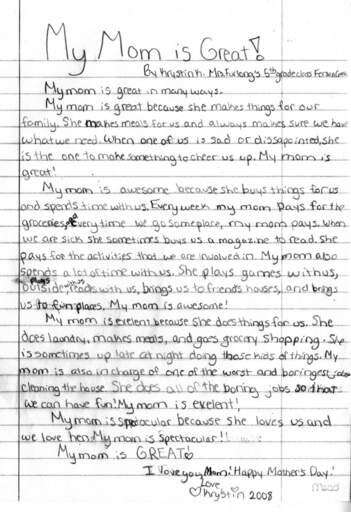 My Mom is Great!
By Krystin H. Mrs. Furlong's 5th grade class
My mom is great in many ways.
My mom is great because she makes things for our
family. She makes meals for us and always makes sure we have
what we need. When one of us is sad or dissapointed, she
is the one to make something to cheer us up. My mom is
great!
My mom is awesome because she buys things for us
and spends time with us. Every week my mom pays for the
groceries. Every time we go someplace, my mom pays. When
we are sick she sometimes buys us a magazine to read. She
pays for the activities that we are involved in. My mom also
spends a lot of time with us. She plays games with us,
plays outside with us, reads with us, brings us to friends houses, and brings
us to fun places. My mom is awesome!
My mom is exelent because she does things for us. She
does laundry, makes meals, and goes grocry shopping. She
is sometimes up late at night doing those kids of things. My
mom is also in charge of one of the worst and boringest jobs
cleaning the house. She does all of the boring jobs so that
we can have fun! My mom is exelent!
My mom is spectacular because she loves us and
we love her. My mom is spectacular!!
My mom is GREAT!
I love you Mom! Happy Mother's Day!
Love,
Krystin 2008
Mead